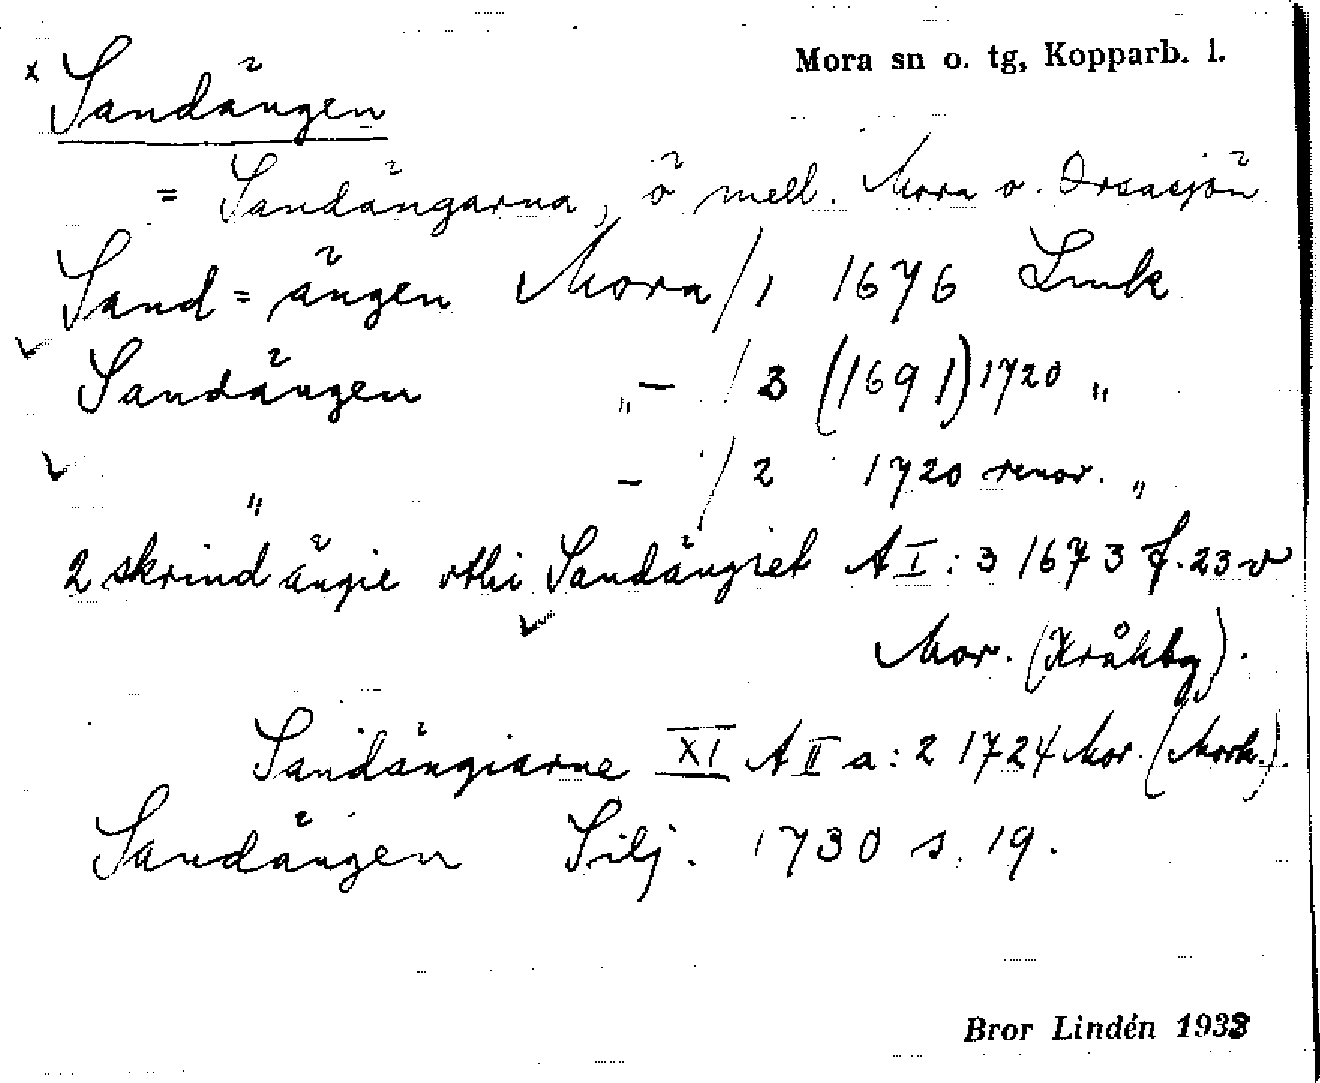 Mora sn o. tg, Kopparb. l.
x Sandängen
= Sandängarna, ö mell. Mora o. Orsasjön
Sand=ängen Mora/1 1676 Lmk
Sandängen „ – /3 (1691) 1720 „
„ – /2 1720 renov. „
2 skrind ängie vthi Sandängiet A I:3 1673 f. 23 v
Mor. (Kråkbg).
Sandängiarne XI A II a:2 1724 Mor. (Mork.).
Sandängen Silj. 1730 s. 19.
Bror Lindén 1933